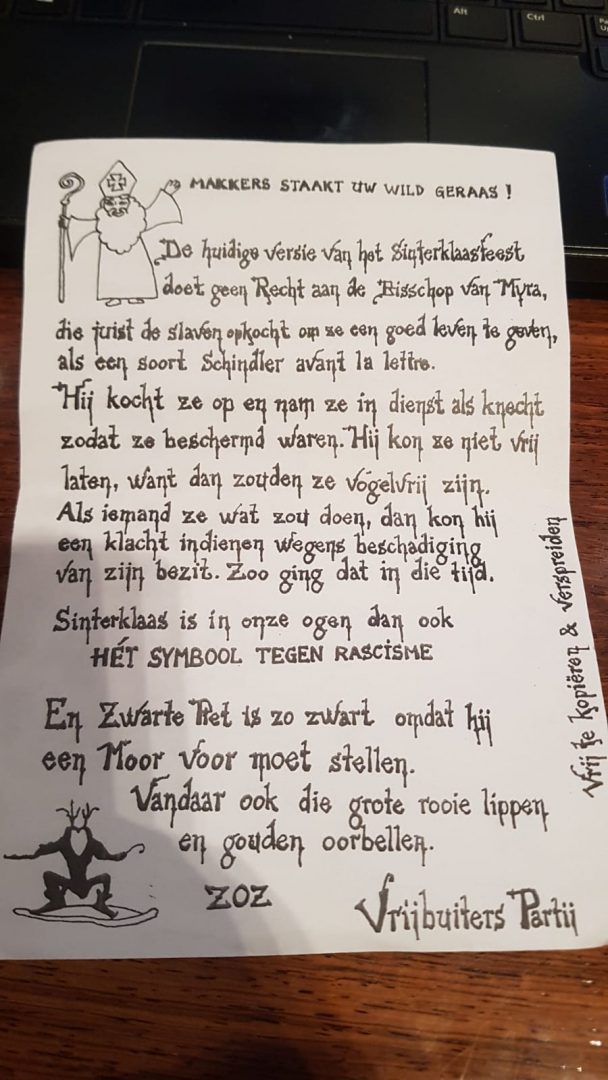 MAKKERS STAAKT UW WILD GERAAS !
De huidige versie van het Sinterklaasfeest
doet geen Recht aan de Bisschop van Myra,
die juist de slaven opkocht om ze een goed leven te geven,
als een soort Schindler avant la lettre.
Hij kocht ze op en nam ze in dienst als knecht
zodat ze beschermd waren. Hij kon ze niet vrij
laten, want dan zouden ze vogelvrij zijn.
Als iemand ze wat zou doen, dan kon hij
een klacht indienen wegens beschadiging
van zijn bezit. Zoo ging dat in die tijd.
Sinterklaas is in onze ogen dan ook
HÉT SYMBOOL TEGEN RASCISME
En Zwarte Piet is zo zwart omdat hij
een Moor voor moet stellen.
Vandaar ook die grote rooie lippen
en gouden oorbellen.
ZOZ
Vrijbuiters Partij
Vrij te kopiëren & verspreiden
Alt
Ctrl